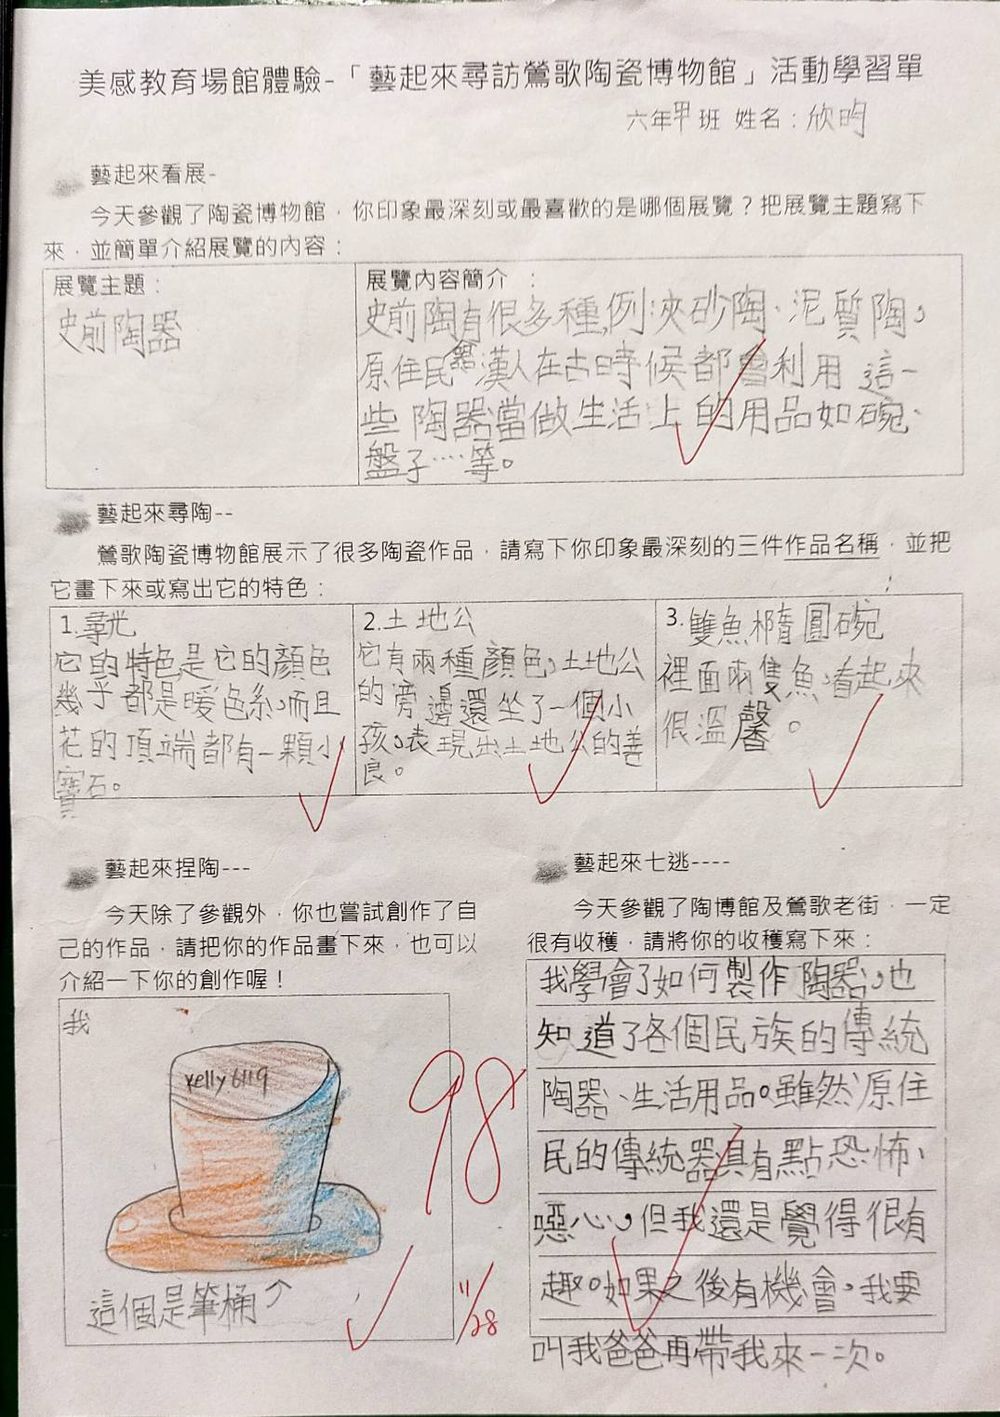 美感教育場館體驗-「藝起來尋訪鶯歌陶瓷博物館」活動學習單
六年甲班 姓名：欣昀
藝起來看展-
今天參觀了陶瓷博物館，你印象最深刻或最喜歡的是哪個展覽？把展覽主題寫下
來，並簡單介紹展覽的內容：
展覽主題：
史前陶器
展覽內容簡介：
史前陶有很多種,例:夾砂陶、泥質陶，
原住民和漢人在古時候都會利用這一
些陶器當做生活上的用品如碗、
盤子……等。
藝起來尋陶--
鶯歌陶瓷博物館展示了很多陶瓷作品，請寫下你印象最深刻的三件作品名稱，並把
它畫下來或寫出它的特色：
1.尋光
它的特色是它的顏色
幾乎都是暖色系，而且
花的頂端都有一顆小
寶石。
2.土地公
它有兩種顏色，土地公
的旁邊還坐了一個小
孩，表現出土地公的善
良。
3.雙魚橢圓碗
裡面兩隻魚，看起來
很溫馨。
藝起來捏陶---
今天除了參觀外，你也嘗試創作了自
己的作品，請把你的作品畫下來，也可以
介紹一下你的創作喔！
我
kelly.6119
這個是筆桶
98
11/28
藝起來七逃----
今天參觀了陶博館及鶯歌老街，一定
很有收穫，請將你的收穫寫下來：
我學會了如何製作陶器，也
知道了各個民族的傳統
陶器、生活用品。雖然原住
民的傳統器具有點恐怖、
噁心，但我還是覺得很有
趣。如果之後有機會，我要
叫我爸爸再帶我來一次。